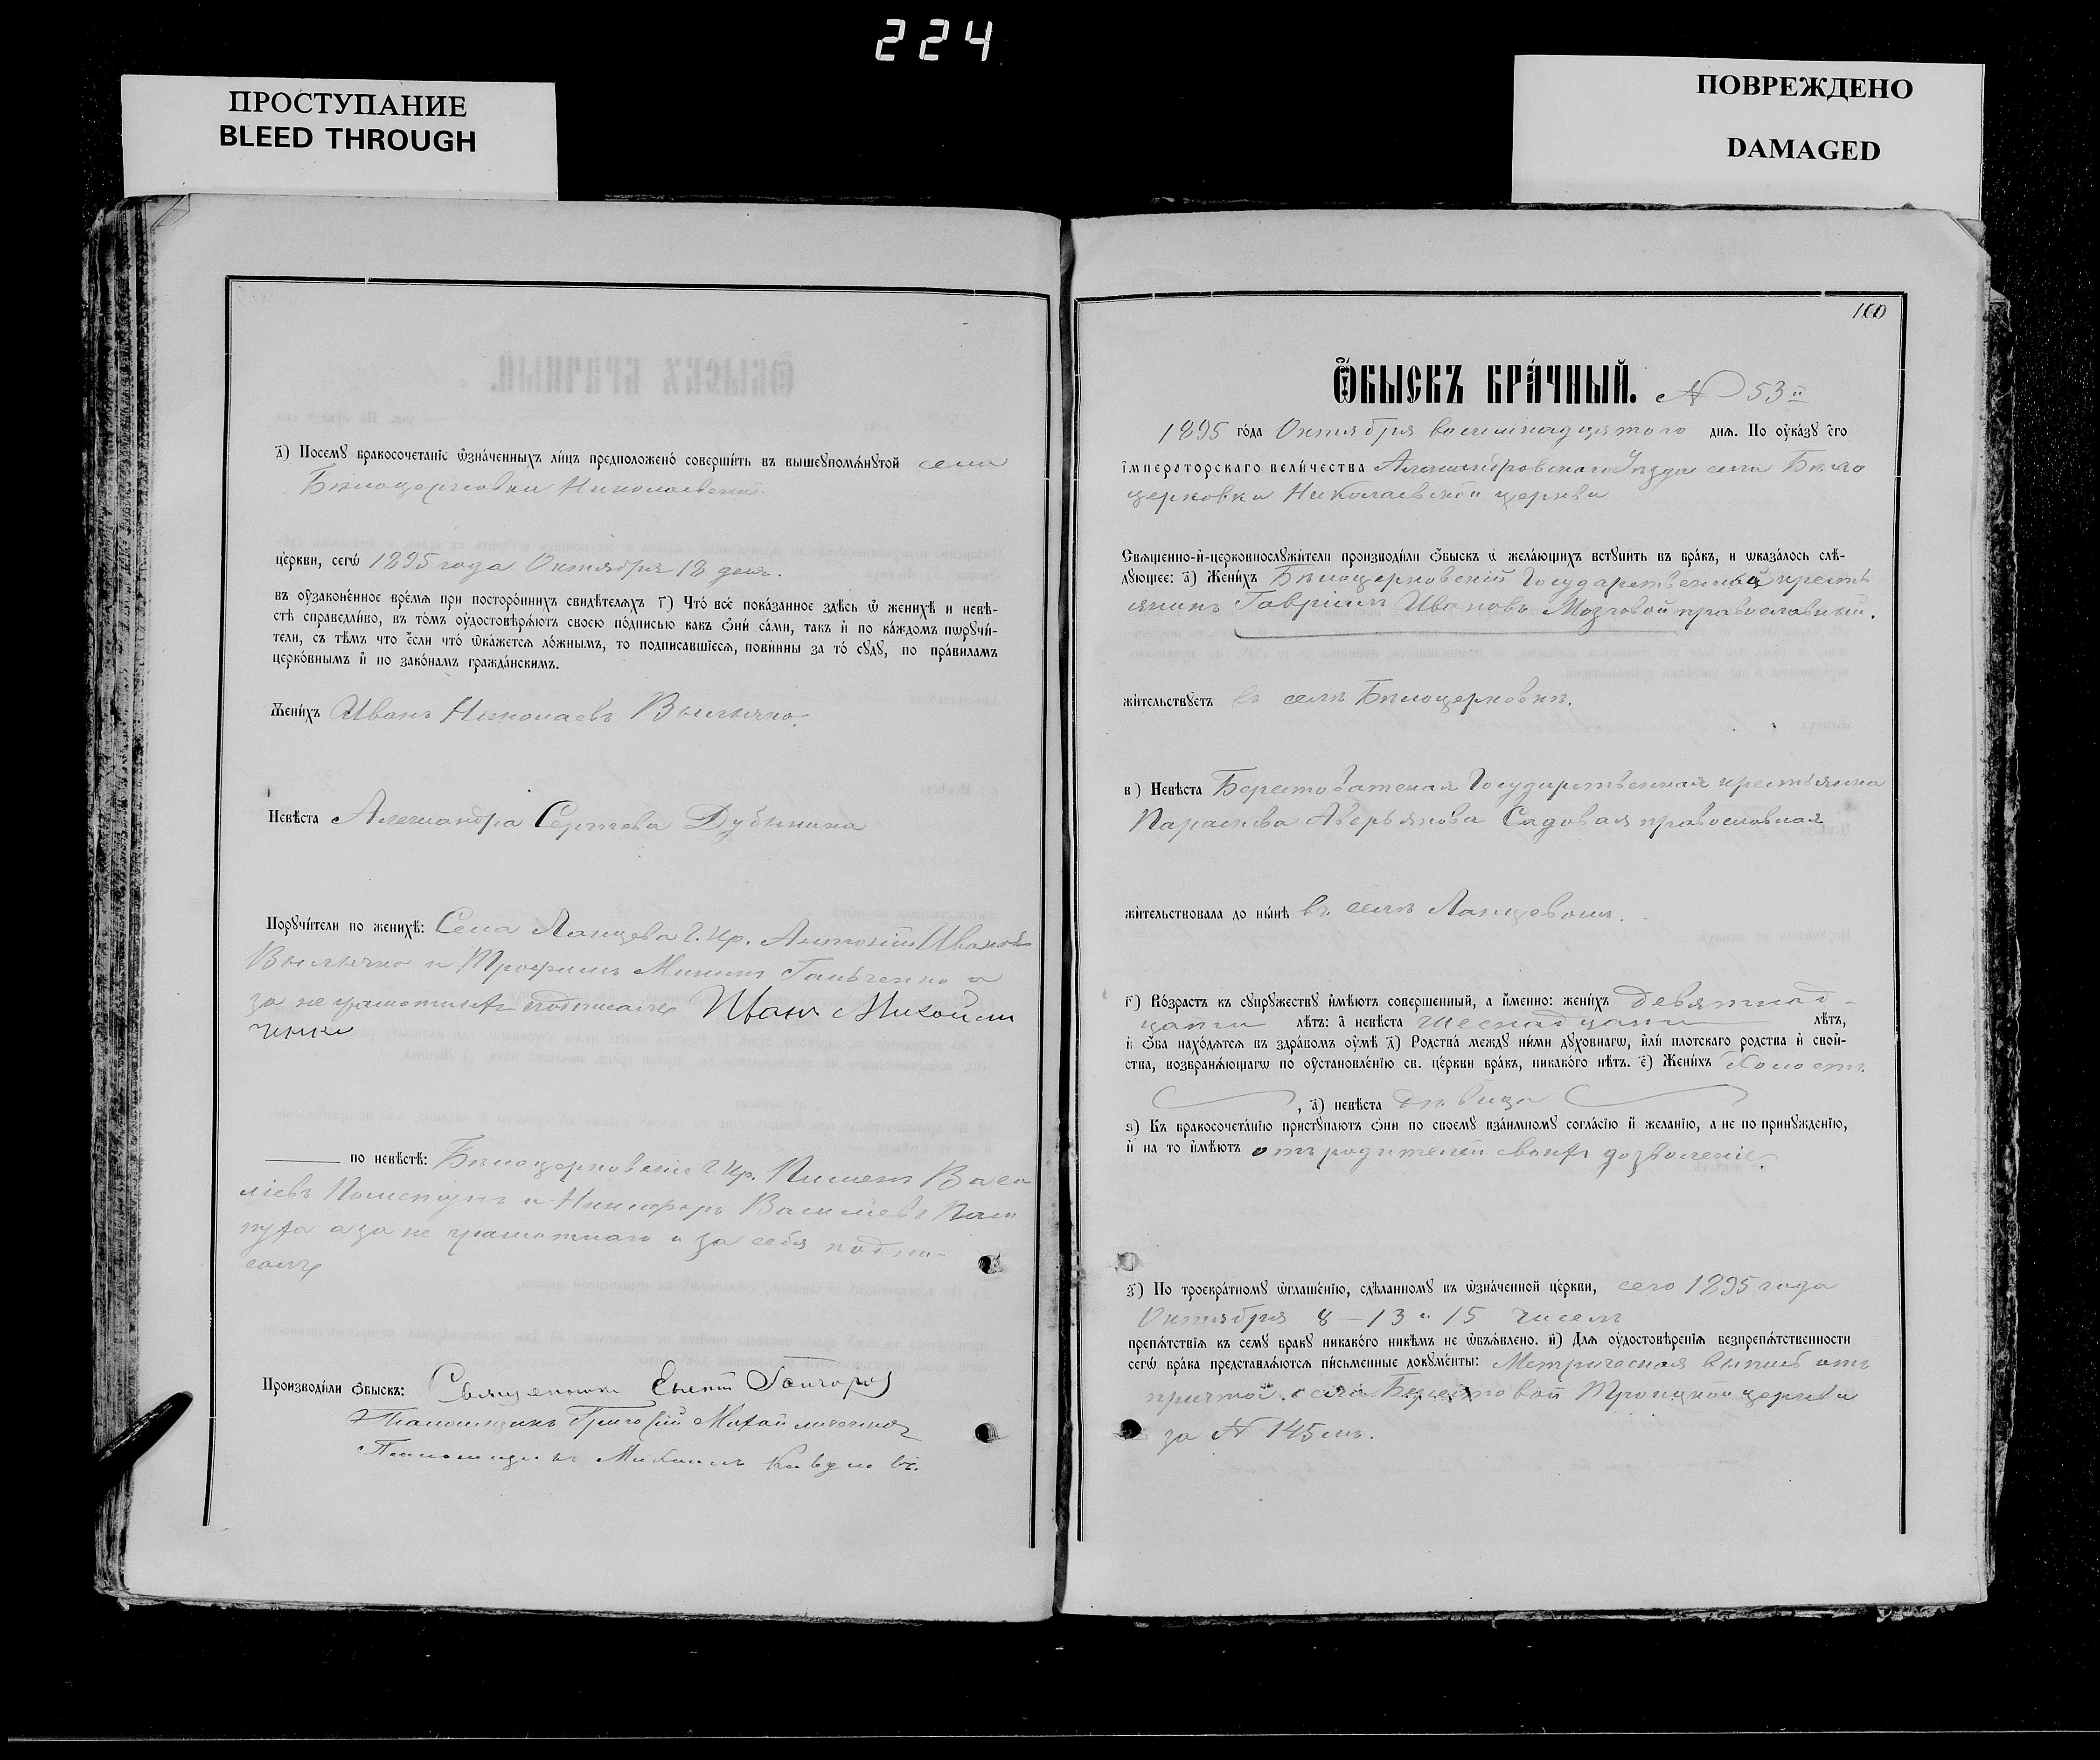 224
ПРОСТУПАНИЕ
BLEED THROUGH
ПОВРЕЖДЕНО
DAMAGED
д҃) Посемꙋ бракосочетанїе ѡ҆зна́ченныхъ ли́цъ предположено̀ соверши́ть въ вышеꙋпомѧ́нꙋтой села
Бѣлоцерковки Николаевской
це́ркви, сегѡ̀ 1895 года Октября 18 дня.
въ оу҆зако́ненное вре́мѧ при посторо́ннихъ свидѣ́телѧхъ г҃) Что̀ всѐ пока́занное здѣ́сь ѡ҆ женихѣ̀ и невѣ-
стѣ̀ справедли́во, въ то́мъ оу҆достовѣрѧ́ютъ своею по́дписью какъ ѻ҆нѝ са́ми, такъ и҆ по ка́ждомъ порꙋчи́-
тели, съ тѣ́мъ что є҆́сли что̀ ѡ҆ка́жетсѧ ло́жнымъ, то подписавшїесѧ, пови́нны за то̀ сꙋдꙋ̀, по пра́виламъ
церко́внымъ и҆ по зако́намъ гражда́нскимъ.
Жени́хъ Иванъ Николаевъ
Невѣ́ста Александра Сергѣева Дубинина
Порꙋчи́тели по женихѣ̀: Села Ланцева Г. кр. Антоній Ивановъ
и Трофимъ Мининъ Гальченко а
за неграмотныхъ подписалъ Иванъ Михайли
ченко
по невѣ́стѣ: Бѣлоцерковскіе Г. кр. Пименъ Васи
ліевъ и Никифоръ Василіевъ
а за не грамотнаго и за себя подпи-
салъ
Производи́ли ѻ҆́быскъ: Священникъ Гончаровъ
Псаломщикъ Григорій Михайличенко
Псаломщикъ Михаилъ
160
Ѻ҆́быскъ бра́чный. № 53й
1895 го́да Октября восемнадцятого днѧ̀. По оу҆ка́зꙋ є҆гѡ̀
і҆мператорскагѡ вели́чества Александровскаго Уѣзда села Бѣло
церковки Николаевской церкви
Свѧщенно-и҆-церковнослꙋжи́тели производи́ли ѻ҆́быскъ ѡ҆ жела́ющихъ встꙋпи́ть въ бра́къ, и ѡказа́лось слѣ́-
дꙋющее: а҃) Жени́хъ Бѣлоцерковскій Государственный кресть
янинъ Гавріилъ Ивановъ Мозговой православный.
жи́тельствꙋетъ въ селѣ Бѣлоцерковкѣ.
в҃) Невѣ́ста Берестоватская Государственная крестьянка
Параскева Аверьянова Садовая православная
жи́тельствовала до ны́нѣ въ селѣ Ланцевомъ.
г҃) Во́зрастъ къ сꙋпрꙋ́жествꙋ и҆мѣ́ютъ соверше́нный, а и҆́менно: жени́хъ девятнад-
цати лѣ́тъ: а҆ невѣ́ста шеснадцати лѣ́тъ,
и҆ ѻ҆́ба нахо́дѧтсѧ въ здра́вомъ оу҆мѣ̀ д҃) Родства̀ междꙋ ни́ми дꙋхо́внагѡ, и҆лѝ плотскаго родства и҆ свой-
ства, возбранѧ́ющагѡ по оу҆становле́нїю св. це́ркви бра́къ, никако́го нѣ́тъ. є҃) Жени́хъ Холостъ
, а҃) невѣ́ста дѣвица
ѕ҃) Къ бракосочета́нїю пристꙋпа́ютъ ѻ҆нѝ по своемꙋ̀ вза́имномꙋ согла́сїю и҆ желанїю, а не по принꙋжде́нїю,
и҆ на то и҆мѣ́ютъ отъ родителей своихъ дозволеніе.
з҃) По троекра́тномꙋ ѡ҆глаше́нїю, сдѣ́ланномꙋ въ ѡ҆зна́ченной це́ркви, сего 1895 года
Октября 8 – 13 и 15 чиселъ
препѧ́тствїѧ къ семꙋ̀ бра́кꙋ никако́го никѣ́мъ не ѡ҆бъѧ́влено. и҃) Длѧ оу҆достовѣ́ренїѧ безпрепѧ́тственности
сегѡ̀ бра́ка представлѧ́ютсѧ пи́сьменные докꙋме́нты: Метрическая выпись отъ
причта села Берестовой Троицкой церкви
за № 145мъ.